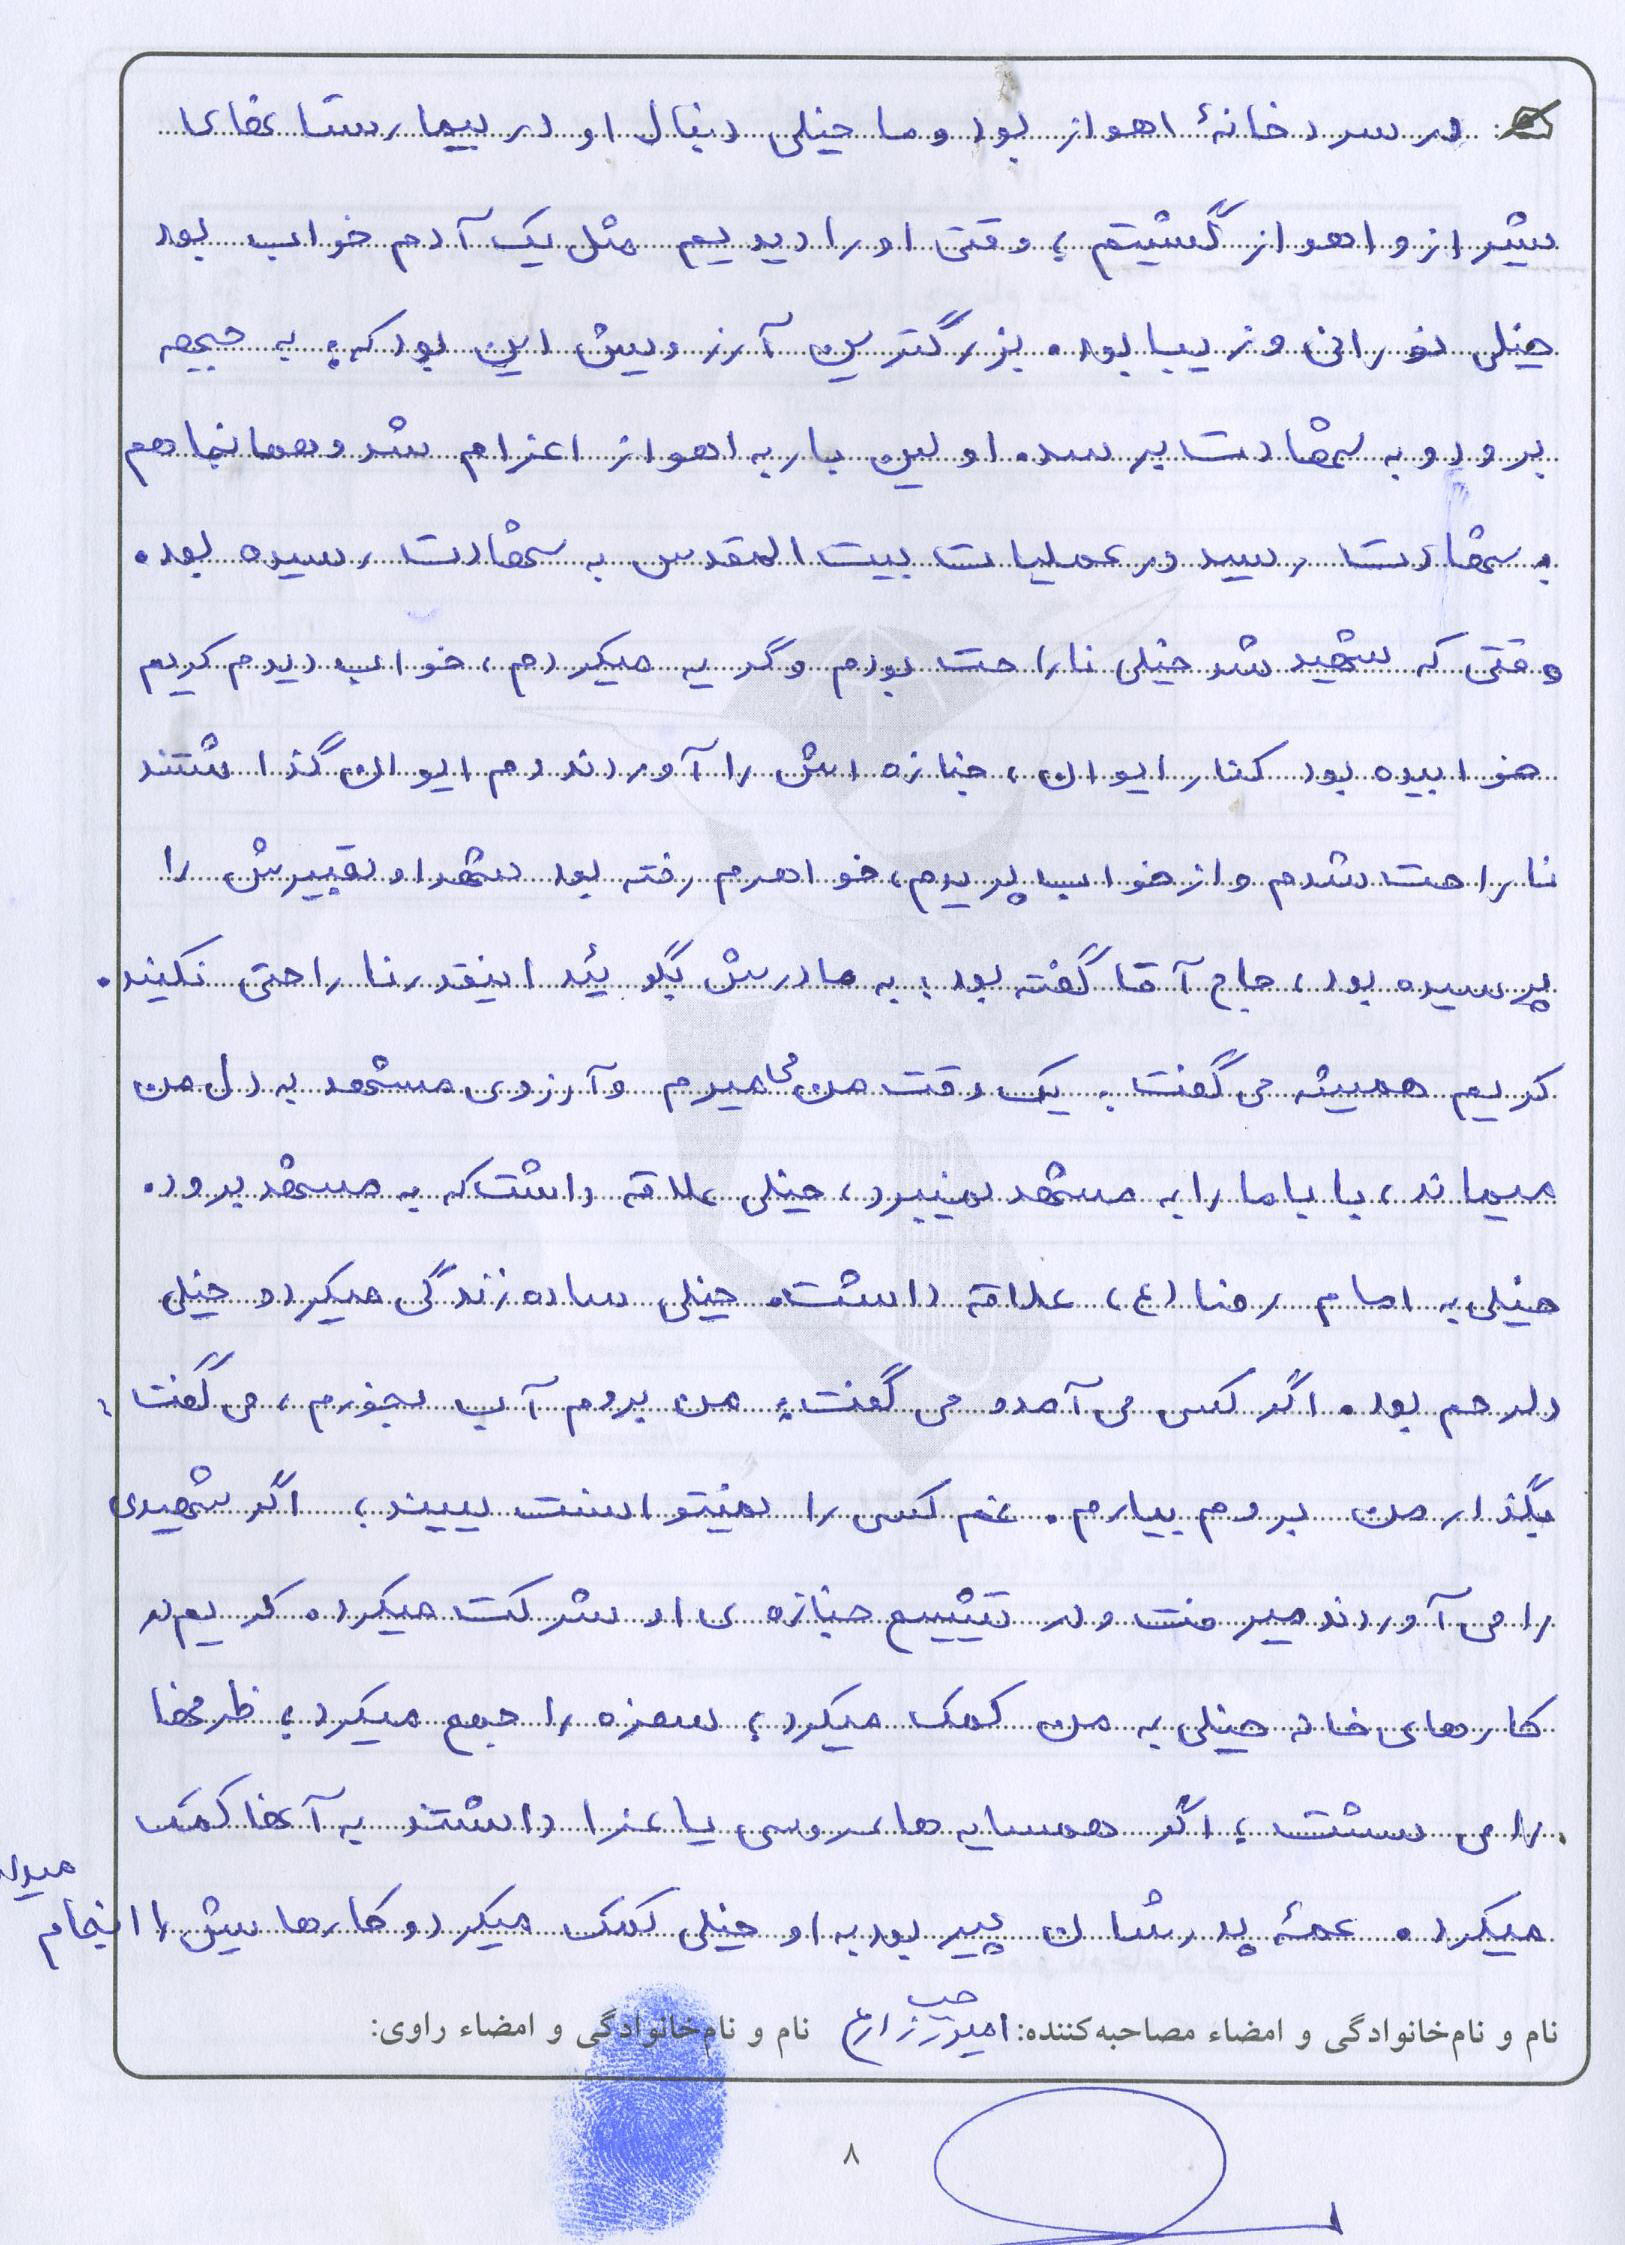 در سردخانهٔ اهواز بود و ما خیلی دنبال او در بیمارستانهای
شیراز و اهواز گشتیم ؛ وقتی او را دیدیم مثل یک آدم خواب بود
خیلی نورانی و زیبا بود. بزرگترین آرزویش این بود که ؛ به جبهه
برود و به شهادت برسد. اولین بار به اهواز اعزام شد و همانجا هم
به شهادت رسید در عملیات بیت المقدس به شهادت رسیده بود.
وقتی که شهید شد خیلی ناراحت بودم و گریه میکردم ، خواب دیدم کریم
خوابیده بود کنار ایوان ، جنازه اش را آوردند دم ایوان گذاشتند
ناراحت شدم و از خواب پریدم ، خواهرم رفته بود شهدا و تعبیرش را
پرسیده بود ، حاج آقا گفته بود ؛ به مادرش بگوئید اینقدر ناراحتی نکنید.
کریم همیشه می گفت : یک وقت من میمیرم و آرزوی مشهد به دل من
میماند ، بابا ما را به مشهد نمیبرد ، خیلی علاقه داشت که به مشهد برود.
خیلی به امام رضا (ع) علاقه داشت. خیلی ساده زندگی میکرد و خیلی
دلرحم بود. اگر کسی می آمد و می گفت ؛ من بروم آب بخورم ، می گفت :
بگذار من بروم بیارم. غم کسی را نمیتوانست ببیند ؛ اگر شهیدی
را می آوردند میرفت و در تشییع جنازه ی او شرکت میکرد. کریم در
کارهای خانه خیلی به من کمک میکرد ؛ سفره را جمع میکرد ؛ ظرفها
را می شست ؛ اگر همسایه ها عروسی یا عزا داشتند به آنها کمک
میکرد. عمهٔ پدرشان پیر بود به او خیلی کمک میکرد و کارهایش را انجام
نام و نام‌خانوادگی و امضاء مصاحبه‌کننده: نام و نام‌خانوادگی و امضاء راوی:
۸